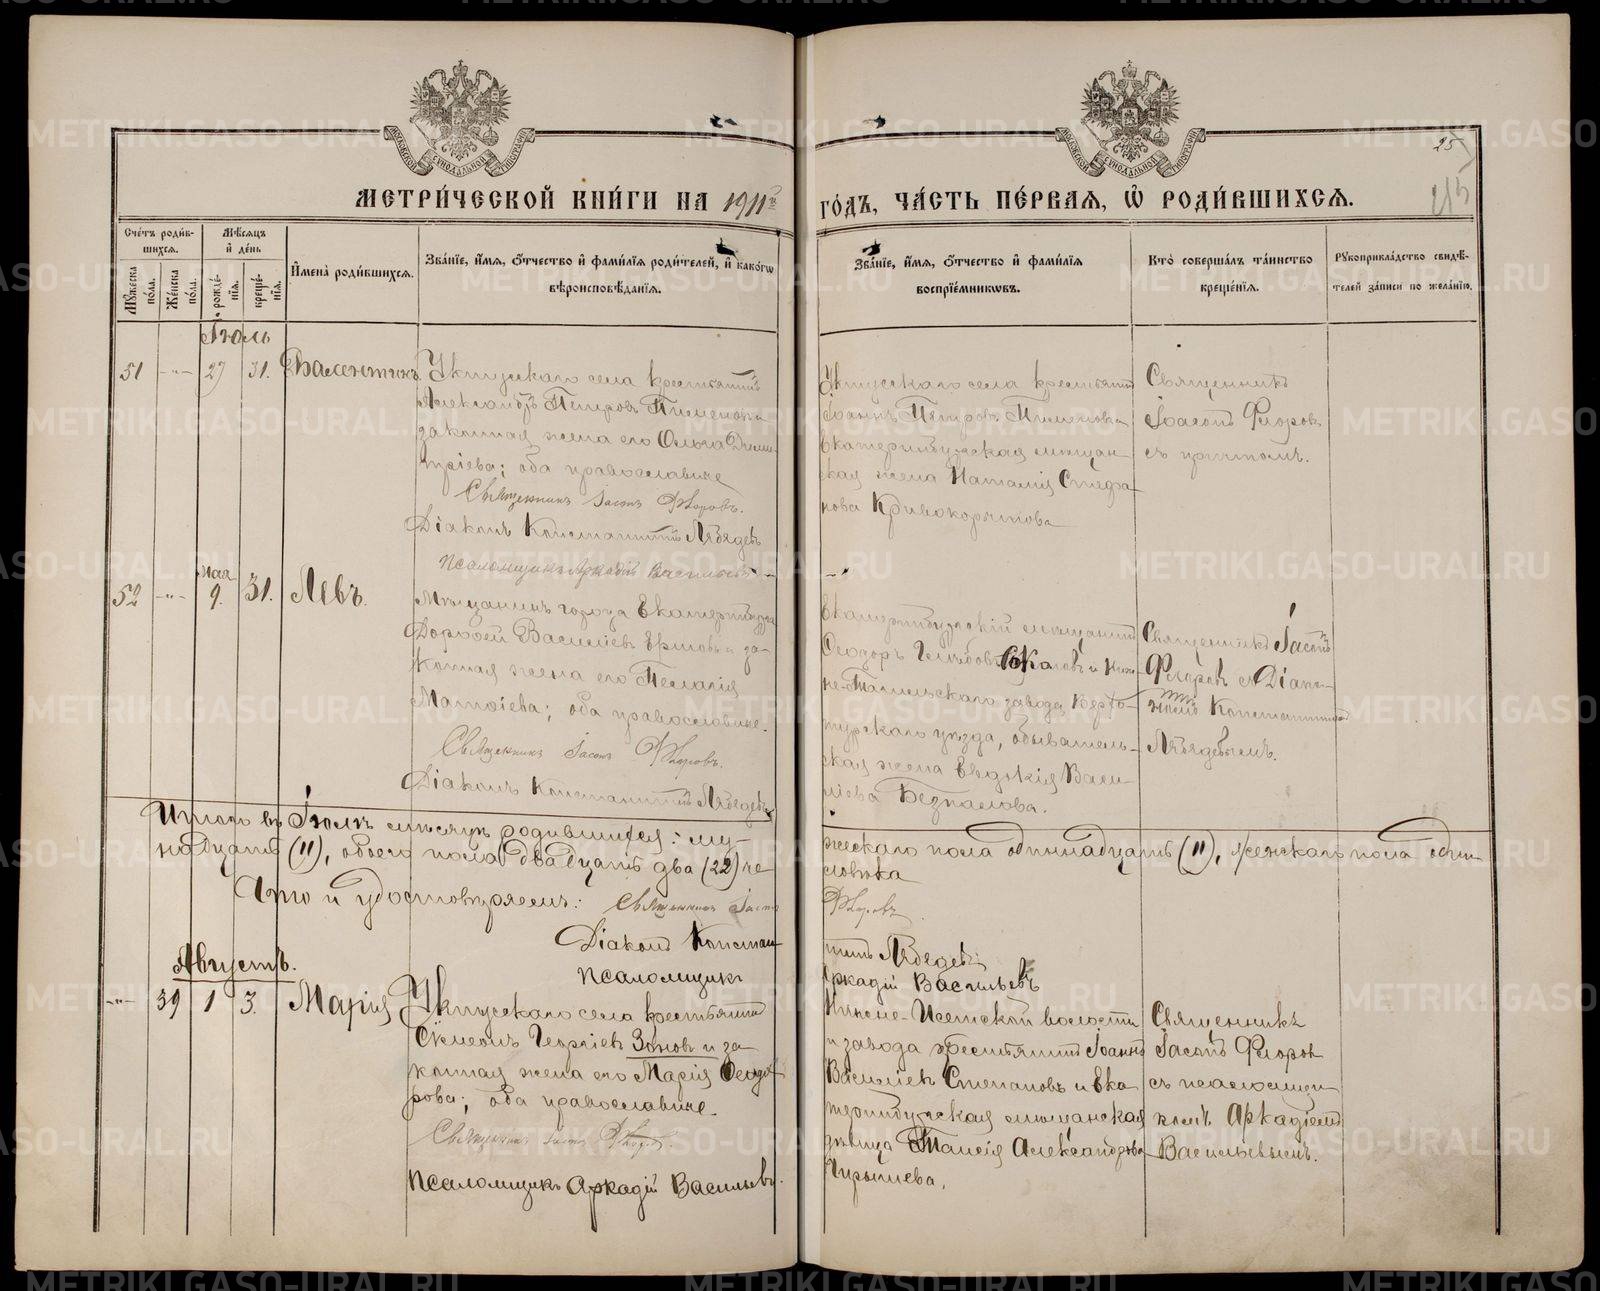 25
215
МЕТРИ́ЧЕСКОЙ КНИ́ГИ НА 1911й
ГО́ДЪ, ЧА́СТЬ ПЕ́РВАЯ, Ѡ҆ РОДИ́ВШИХСЯ.
Сче́тъ роди́в-
шихся.
Мѣ́сяцъ
и҆ де́нь
Мꙋ́жеска по́ла.
Же́нска по́ла.
рожде́-
нїя.
креще́-
нїя.
И҆мена̀ роди́вшихся.
Зва́нїе, и҆́мя, ѻ҆́тчество и҆ фами́лїя роди́телей, и҆ како́гѡ
вѣроисповѣ́данїя.
Зва́нїе, и҆́мя, ѻ҆́тчество и҆ фами́лїя
воспрїе́мникѡвъ.
Кто̀ соверша́лъ та́инство
креще́нїя.
Рꙋкоприкла́дство свидѣ́-
телей за́писи по жела́нїю.
Іюль
51 -"- 27 31. Валентинъ.
Уктусскаго села крестьянинъ
Александръ Петровъ Пименовъ и
законная жена его Ольга Дими-
тріева; оба православные
Священникъ Іасонъ Флоровъ.
Діаконъ Константинъ Лебедевъ
Псаломщикъ Аркадій Васильевъ
Уктусскаго села крестьянинъ
Іоаннъ Петровъ Пименовъ и
Екатеринбургская мѣщан-
ская жена Наталія Стефа-
нова Кривокорытова
Священникъ
Іасонъ Флоровъ
съ причтомъ.
52 -"- мая 9. 31. Левъ.
Мѣщанинъ города Екатеринбурга
Дорофей Васильевъ Ершовъ и за-
конная жена его Пелагія
Матѳіева; оба православные.
Священникъ Іасонъ Флоровъ.
Діаконъ Константинъ Лебедевъ
Екатеринбургскій мѣщанинъ
Ѳеодоръ Глѣбовъ и Ниж-
не-Тагильскаго завода, Верхо-
турскаго уѣзда, обыватель-
ская жена Евдокія Васи-
льева
Священникъ Іасонъ
Флоровъ съ Діако-
номъ Константиномъ
Лебедевымъ.
Итого въ Іюлѣ мѣсяцѣ родившихся: му-
жескаго пола одиннадцать (11), женскаго пола один-
надцать (11), обоего пола двадцать два (22) че-
ловѣка
Что и удостовѣряемъ: Священникъ Іасонъ
Флоровъ.
Діаконъ Констан-
тинъ Лебедевъ
Псаломщикъ
Аркадій Васильевъ
Августъ.
-"- 39 1 3. Марія
Уктусскаго села крестьянинъ
Сѵмеонъ Георгіевъ Зоновъ и за-
конная жена его Марія Ѳеодо-
рова; оба православные.
Священникъ Іасонъ Флоровъ
Псаломщикъ Аркадій Васильевъ.
Нижне-Исетской волости
и завода крестьянинъ Іоаннъ
Васильевъ Степановъ и Ека-
теринбургская мѣщанская
дѣвица Таисія Александрова
Священникъ
Іасонъ Флоровъ
съ псаломщи-
комъ Аркадіемъ
Васильевымъ.
METRIKI.GASO-URAL.RU